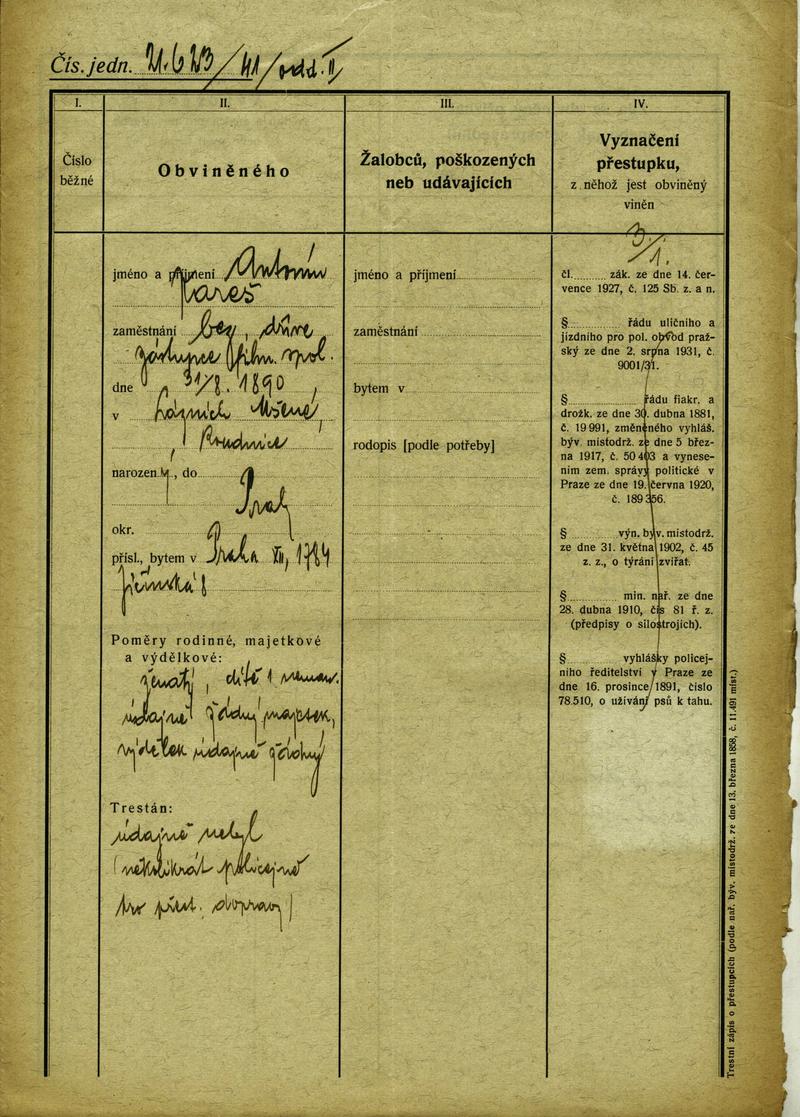 Čís. jedn. 21.623/41/odd. II
I.
Číslo
běžné
II.
Obviněného
III.
Žalobců, poškozených
neb udávajících
IV.
Vyznačení
přestupku,
z něhož jest obviněný
vinen
jméno a příjmení Antonín
Vareš
zaměstnání bez, dříve
zástupce film. spol.
dne 31/8. 1890,
v Lázních Mšené,
Roudnice
narozen, do
Prah
okr.
přísl., bytem v Praha XII, 1784
Římská 8
Poměry rodinné, majetkové
a výdělkové:
ženatý, dítě 1 nemaj.
údajně žádný majetek,
výdělek údajně žádný
Trestán:
údajně nebyl
(několikrát policejně
pro přest. dopravy)
jméno a příjmení
zaměstnání
bytem v
rodopis [podle potřeby]
3/1.
čl. zák. ze dne 14. čer-
vence 1927, č. 125 Sb. z. a n.
§ řádu uličního a
jízdního pro pol. obvod praž-
ský ze dne 2. srpna 1931, č.
9001/31.
§ řádu fiakr. a
drožk. ze dne 30. dubna 1881,
č. 19 991, změněného vyhláš.
býv. místodrž. ze dne 5 břez-
na 1917, č. 50 403 a vynese-
ním zem. správy politické v
Praze ze dne 19. června 1920,
č. 189 356.
§ výn. býv. místodrž.
ze dne 31. května 1902, č. 45
z. z., o týrání zvířat.
§ min. nař. ze dne
28. dubna 1910, čís 81 ř. z.
(předpisy o silostrojích).
§ vyhlášky policej-
ního ředitelství v Praze ze
dne 16. prosince 1891, číslo
78.510, o užívání psů k tahu.
Trestní zápis o přestupcích (podle nař. býv. místodrž. ze dne 13. března 1858, č. 11.491 míst.)